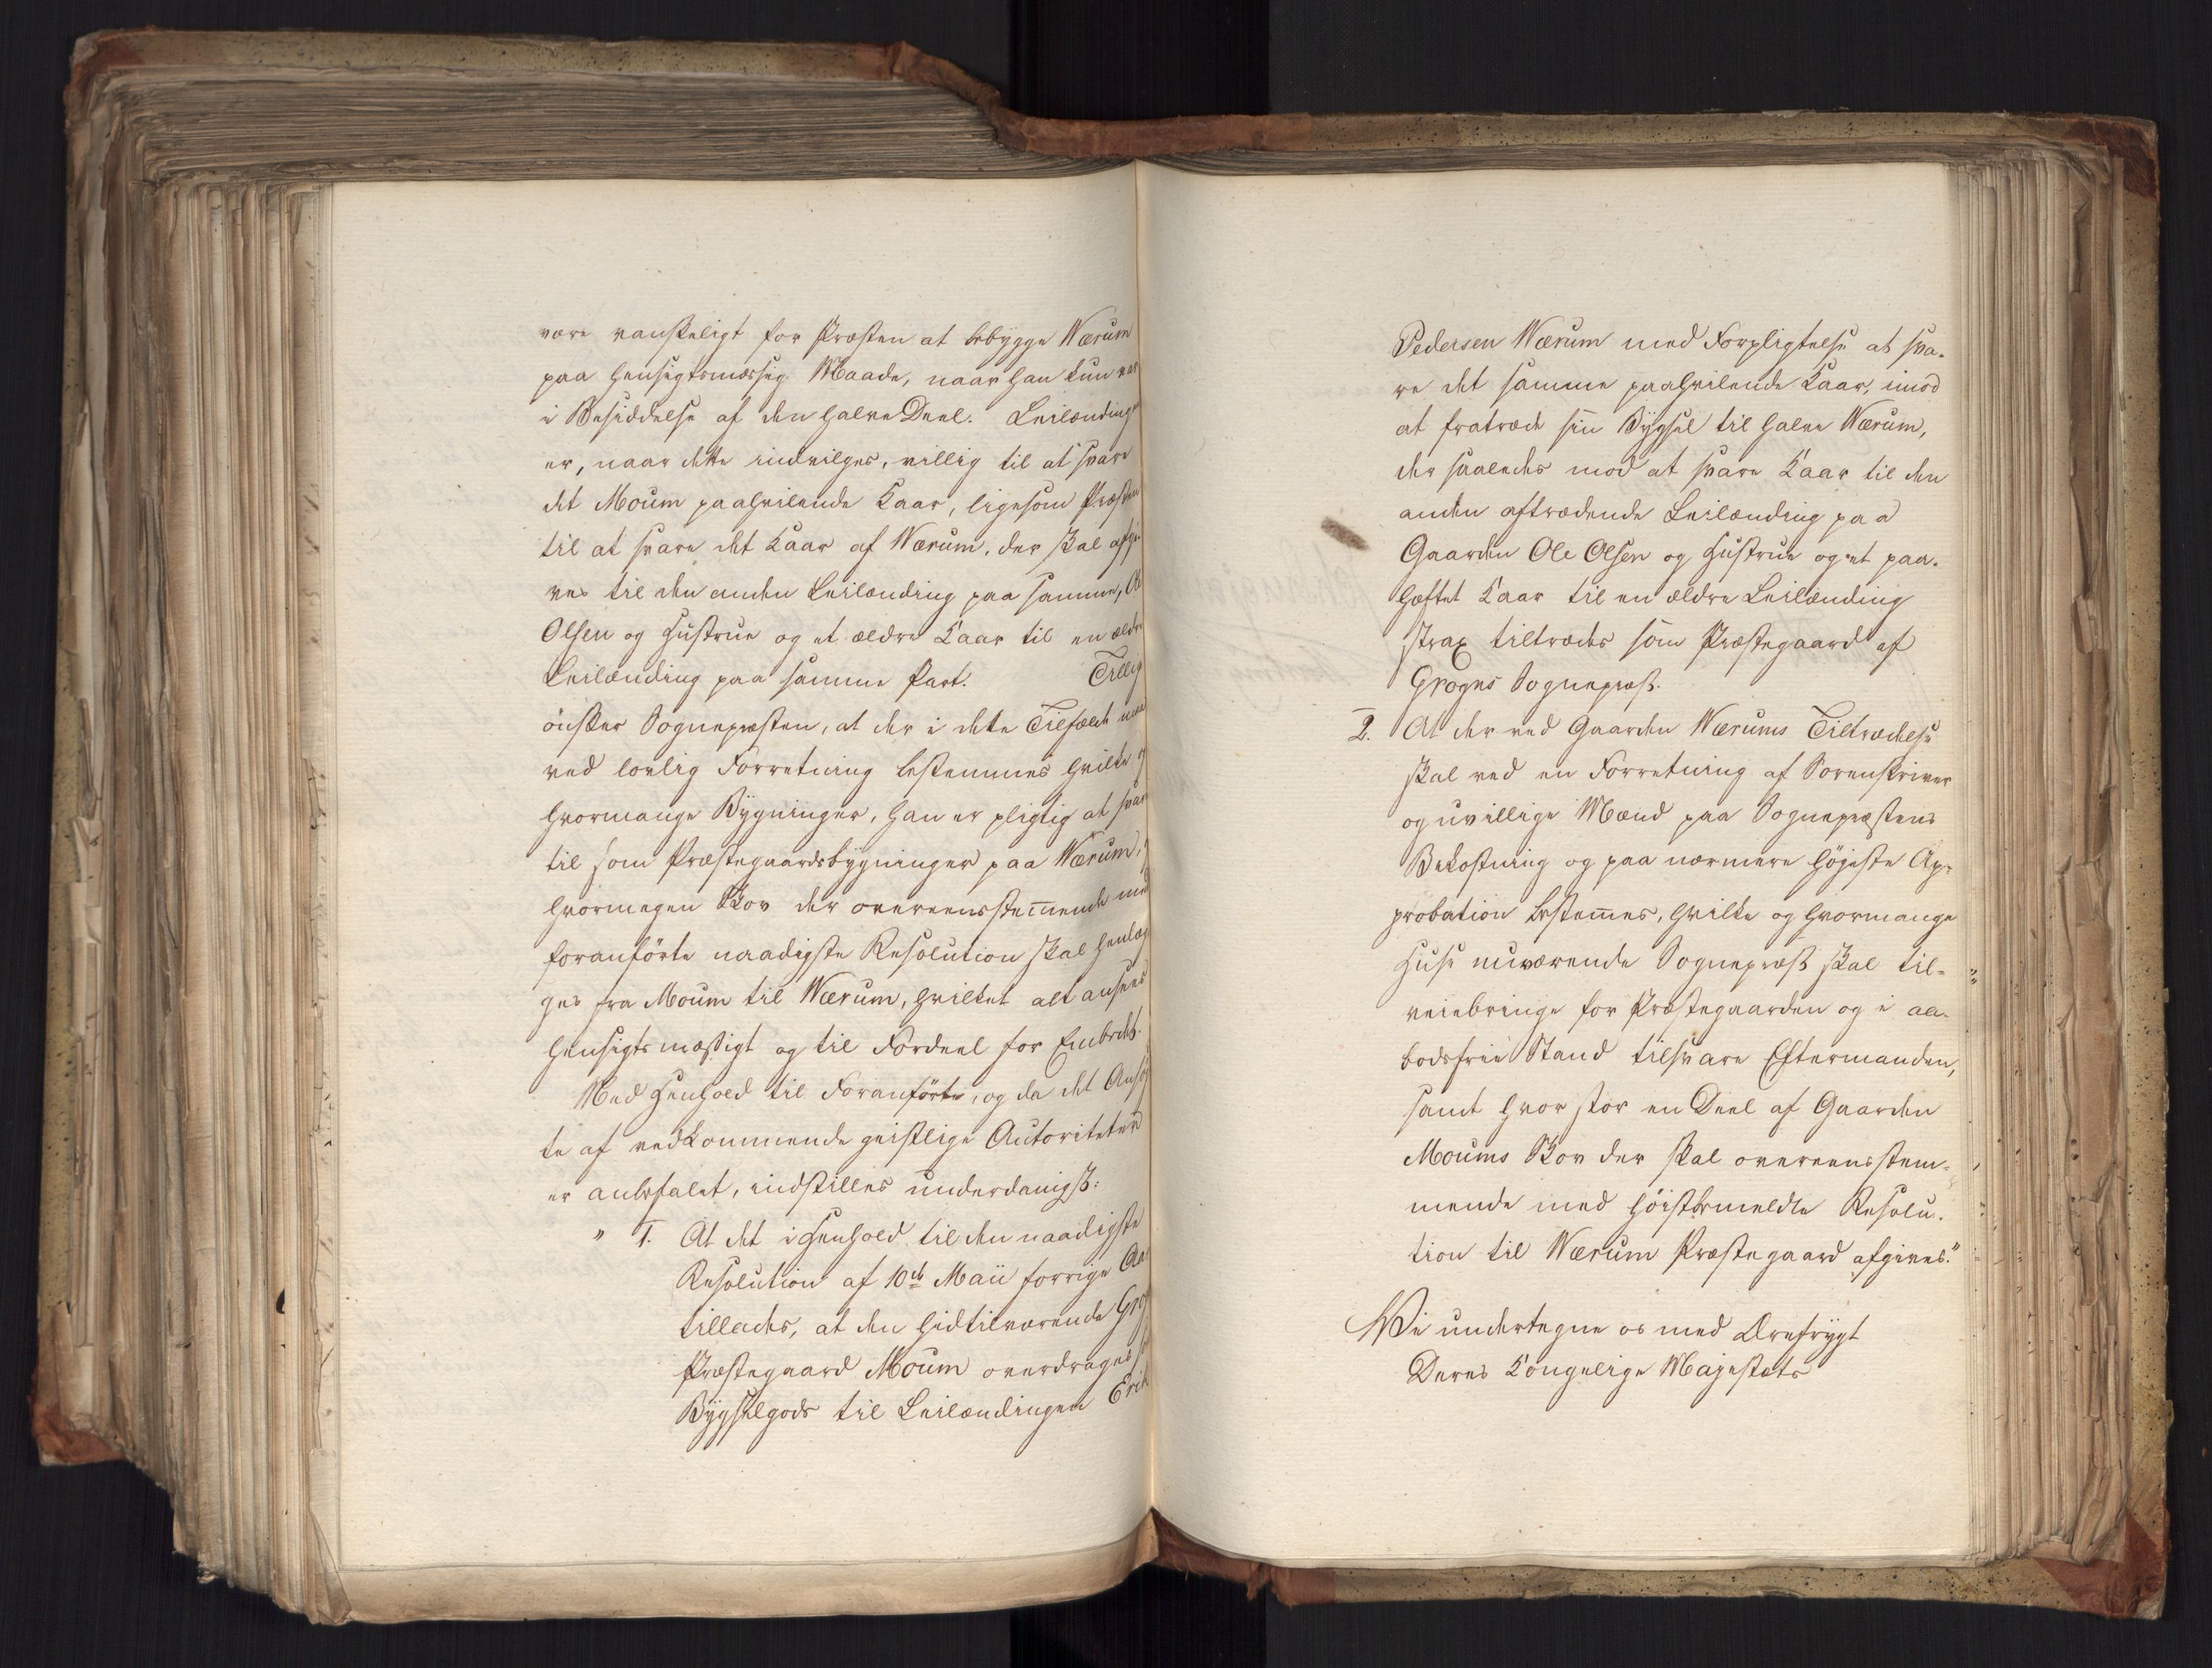 være vanskeligt for Præsten at bebygge Wærum
paa hensigtsmæssig Maade, naar han kun var
i Besiddelse af den halve Deel. Leilændingen
er, naar dette indvilges, villig til at svare
det Moum paahvilende Kaar, ligesom Præsten
til at svare det Kaar af Wærum, der skal afgi-
ves til den anden Leilænding paa samme, Ole
Olsen og Hustrue og et ældre Kaar til en ældre
Leilænding paa samme Part. Tillig
ønsker Sognepræsten, at der i dette Tilfælde maa
ved lovlig Forretning bestemmes hvilke og
hvormange Bygninger, han er pligtig at svare
til som Præstegaardsbygninger paa Wærum,
hvormegen Skov der overeensstemmende med
foranførte naadigste Resolution skal henlæg-
ges fra Moum til Wærum, hvilket alt ansees
hensigtsmæssigt og til Fordeel for Embedet.
Med Henhold til Foranførte, og da det Ansøg-
te af vedkommende geistlige Autoriteter
er anbefalet, indstilles underdanigst:
" 1. At det i Henhold til den naadigste
Resolution af 10de Maii forrige Aar
tillades, at den hidtilværende Grog
Præstegaard Moum overdrages
Bygselgods til Leilændingen Erik
Pedersen Wærum med Forpligtelse at sva-
re det samme paahvilende Kaar, imod
at fratræde sin Bygsel til halve Wærum,
der saaledes mod at svare Kaar til den
anden aftrædende Leilænding paa
Gaarden Ole Olsen og Hustrue og et paa-
hæftet Kaar til en ældre Leilænding
strax tiltrædes som Præstegaard af
Grogns Sognepræst.
2. At der ved Gaarden Wærums Tiltrædelse
skal ved en Forretning af Sorenskriver
og uvillige Mænd paa Sognepræstens
Bekostning og paa nærmere høieste Ap-
probation bestemmes, hvilke og hvormange
Huse nuværende Sognepræst skal til-
veiebringe for Præstegaarden og i aa-
bodsfrie Stand tilsvare Eftermanden,
samt hvor stor en Deel af Gaarden
Moums Skov der skal overeensstem-
mende med høistbemeldte Resolu-
tion til Wærum Præstegaard afgives."
Wi undertegne os med Ærefrygt
Deres Kongelige Majestæts